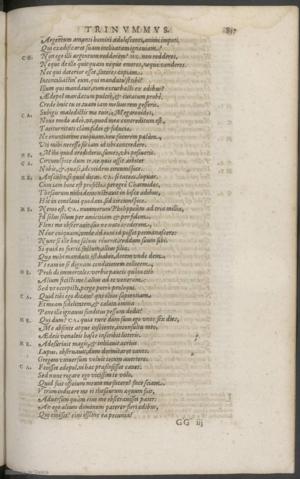 TRINVMMVS.
Argentum amanti homini adolescenti, animi impoti,
Qui exædificaret suam inchoatam ignauiam.
CA. Non ego illi argentum redderem? ME. non redderes,
Neque de illo quicquam neque emeres, neque venderes.
Nec qui deterior esset, faceres copiam.
Ædepol mandatum pulchrè,
Crede huic tutelam
CA. Subigis maledictis me tuis, Megaronides,
Nouo modo
Taciturnitati clam fidei & fiducia,
Ne enuntiarem cuiquam, neu facerem palam,
Vt mihi necesse sit iam id tibi concredere.
ME. Mihi quod credideris, sumes, vbi posueris.
CA. Circumspice dum te, ne quis assit arbiter
Nobis, & quæso, identidem circumspice.
ME. Ausculto, si quid dicas. CA. si taceas, loquar.
Quoniam hinc est profectus peregrè Charmides,
Thesaurum mihi demonstrauit in hisce ædibus,
Hic in conclaui quodam. sed circumspice.
ME. Nemo est. CA. nummorum Philippeûm ad tria millia.
Id solus solum per amicitiam & per fidem
Flens me obsecrauit suo ne nato crederem,
Neu cuiquam, vnde ad eum id posset permanascere.
Nunc si ille huc saluus reuenit, reddam suum sibi:
Si quid eo fuerit,
Quæ mihi mandata est habeo, dotem vnde dem,
Vt eam in se dignam conditionem collocem.
ME. Proh dij immortales: verbis paucis quàm cito
Alium fecisti me: alius ad te veneram.
Sed vt occepisti, perge porrò proloqui.
CA. Quid tibi ego dicam? qui illius sapientiam,
Et meam fidelitatem, & celata omnia
Pæne ille ignauus funditus pessum dedit?
ME. Qui dum? CA. quia ruri dum sum ego vnos sex dies,
Me absente atque insciente, inconsultu meo,
Ædeis venaleis hasce inscribit literis.
ME. Adesuriuit magis, & inhiauit acrius
Lupus. obseruauit, dum dormitaret canes.
Gregem vniuersum voluit totum auertere.
CA. Fecisset ædepol, ni hæc præsensisset canes.
Sed nunc rogare ego vicissim te volo,
Quid fuit officium meum me facere? face sciam.
Vtrum indicare me ei thesaurum æquum fuit,
Aduersum quàm eius me obsecrauisset pater:
An ego alium dominum paterer fieri ædibus,
GG iij